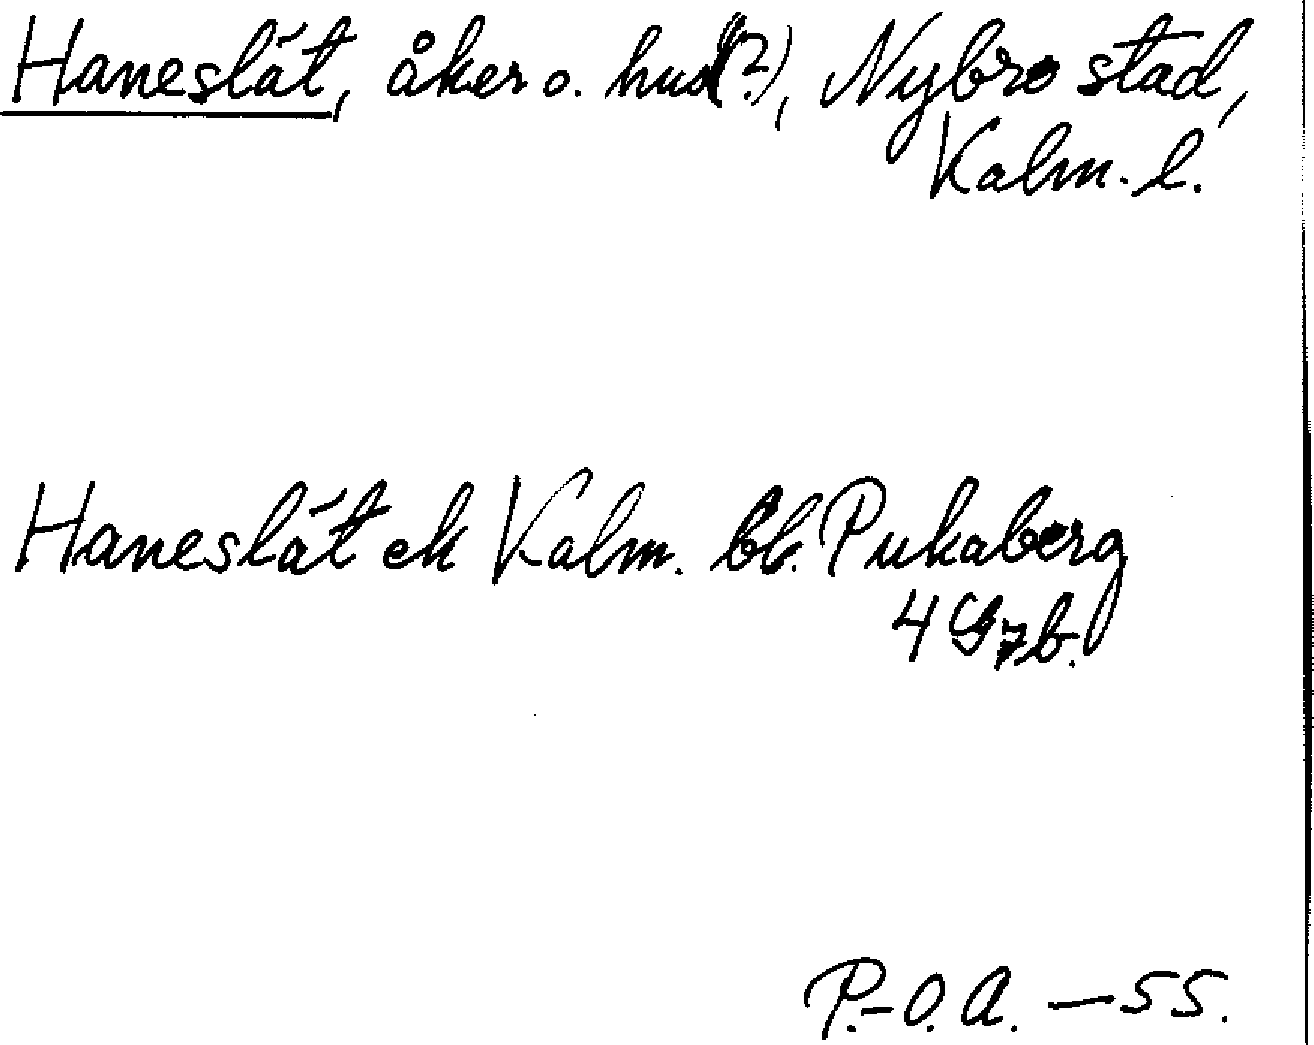 Haneslát, åker o. hus(?), Nybro stad,
Kalm. l.
Haneslát ek Kalm. bb. Pukaberg
4 G7b.
P.-O.A. — 55.